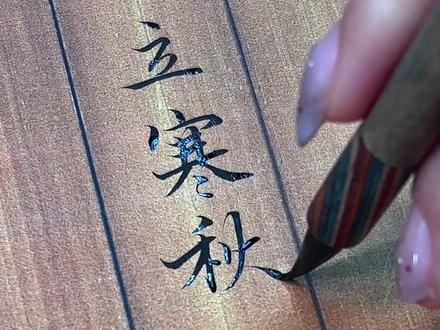 立寒秋